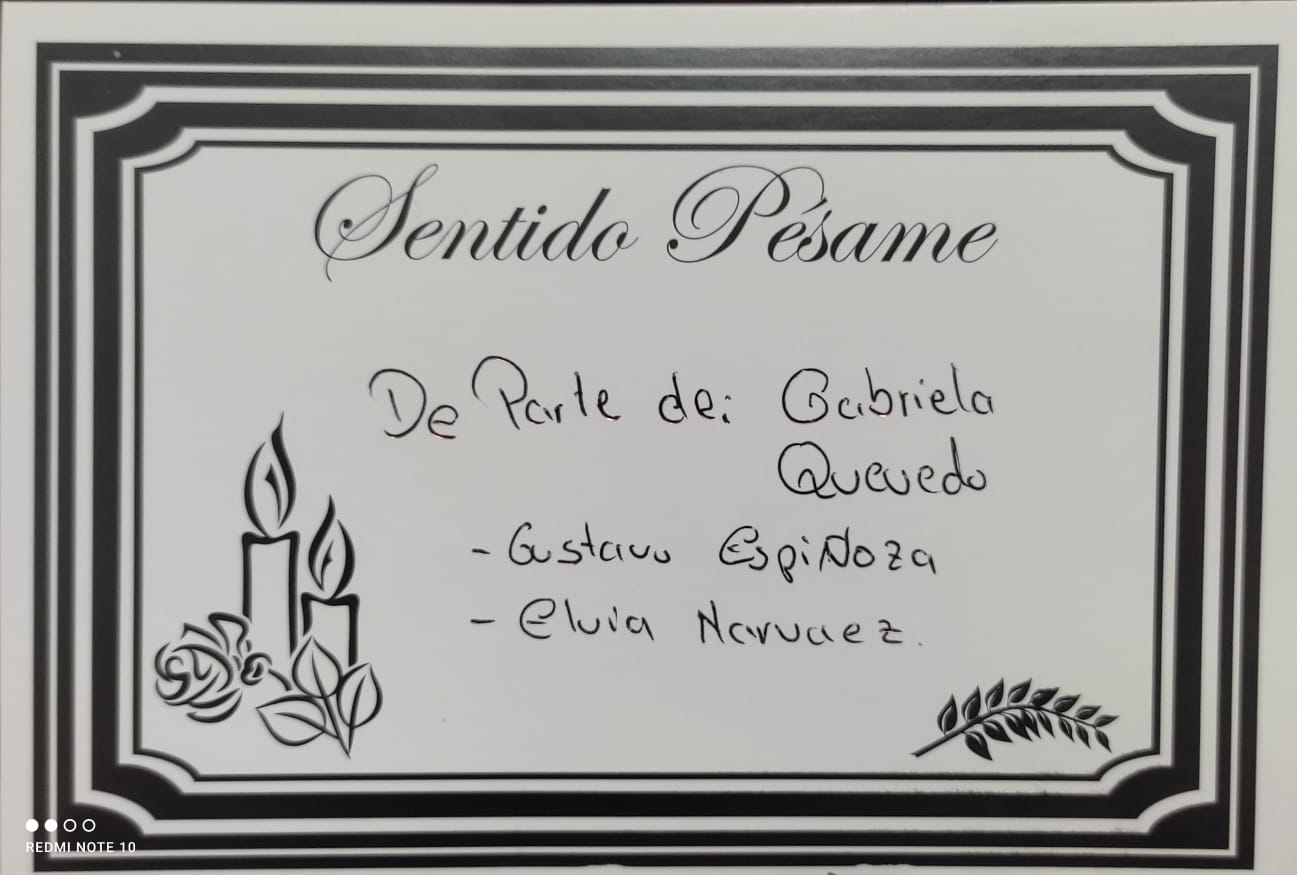 Sentido Pésame
De Parte de: Gabriela
Quevedo
- Gustavo Espinoza
- Elvia Narvaez.
REDMI NOTE 10